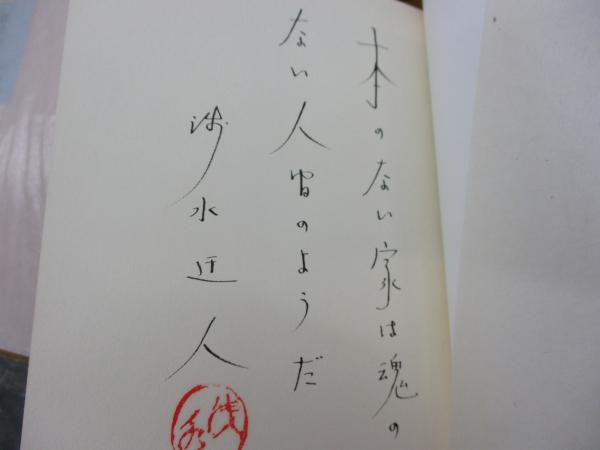 本のない家は魂の
ない人間のようだ
水迂人